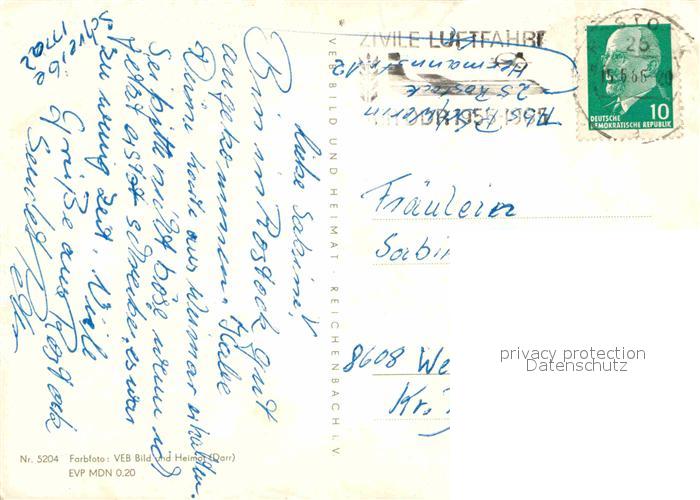 Liebe Sabine!
Bin in Rostock gut
angekommen. Habe
Deine Karte aus Weimar erhalten.
Sei bitte nicht böse wenn ich
jetzt erst schreibe, es war
zu wenig Zeit. Viele
Grüße aus Rostock
sendet Peter
Schreibe
mal
VEB BILD UND HEIMAT · REICHENBACH I. V.
Nr. 5204 Farbfoto: VEB Bild und Heimat (Darr)
EVP MDN 0.20
ZIVILE LUFTFAHRT
DDR 1955-1965
25 Rostock
Hermannstr. 12
25
10
DEUTSCHE
DEMOKRATISCHE REPUBLIK
Fräulein
Sabin
8608 We
Kr.
privacy protection
Datenschutz